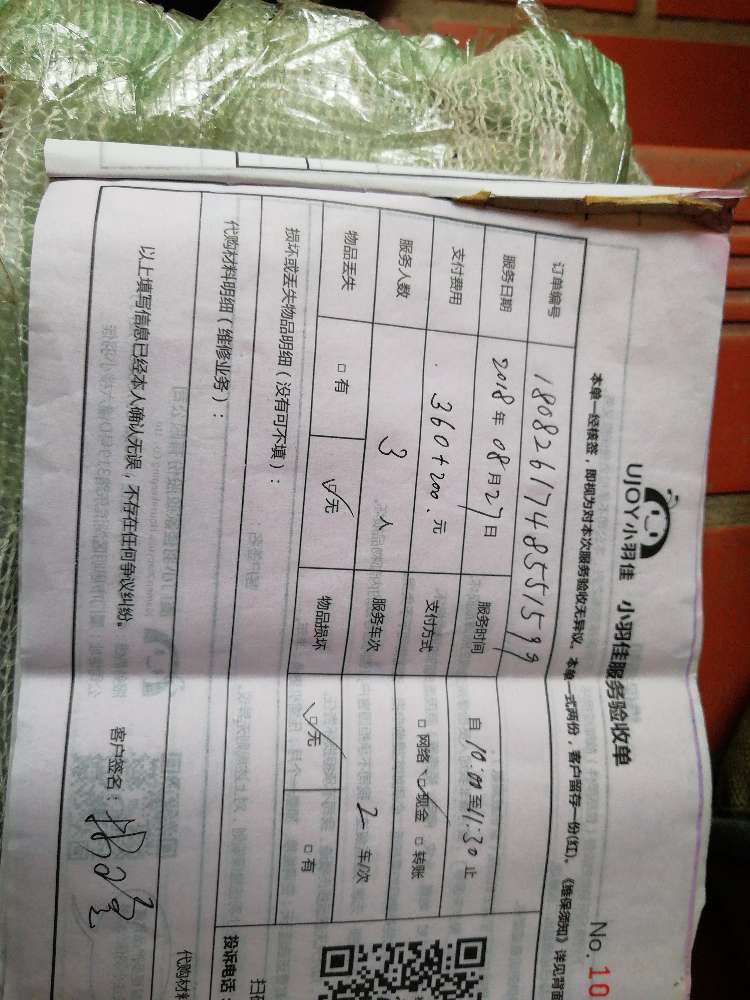 UJOY小羽佳 小羽佳服务验收单
No. 10
本单一经核签，即视为对本次服务验收无异议。本单一式两份，客户留存一份(红)。《维保须知》详见背面
订单编号 18082617485551599
服务日期 2018年08月27日 服务时间 自10:00至11:30止
支付费用 360+200.元 支付方式 □网络 ☑现金 □转账
服务人数 3人 服务车次 2车/次
物品丢失 □有 ☑无 物品损坏 ☑无 □有
损坏或丢失物品明细（没有可不填）：
代购材料明细（维修业务）： 代购材料
以上填写信息已经本人确认无误，不存在任何争议纠纷。 客户签名：
投诉电话：